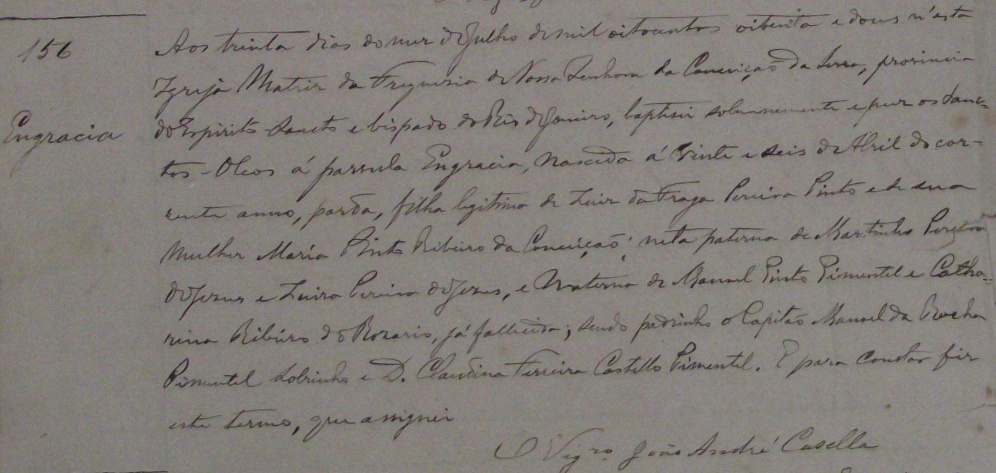 156
Engracia
Aos trinta dias do mez de Julho de mil oitocentos oitenta e dous n'esta
Igreja Matriz da Freguesia de Nossa Senhora da Conceição da Serra, provincia
do Espirito Sancto e bispado do Rio de Janeiro, baptisei solemnemente e puz os Sanc-
tos-Oleos á parvula Engracia, nascida á vinte e seis de Abril do cor-
rente anno, parda, filha legitima de Luiz da Fraga Pereira Pinto e de sua
mulher Maria Pinto Ribeiro da Conceição; neta paterna de Martinho Pereira
de Jesus e Luiza Pereira de Jesus, e Materna de Manoel Pinto Pimentel e Catha-
rina Ribeiro do Rozario, já fallecida; sendo padrinho o Capitão Manoel da Rocha
Pimentel Sobrinho e D. Claudina Ferreira Castello Pimentel. E para constar fiz
este termo, que assignei
O Vigro João André Casella